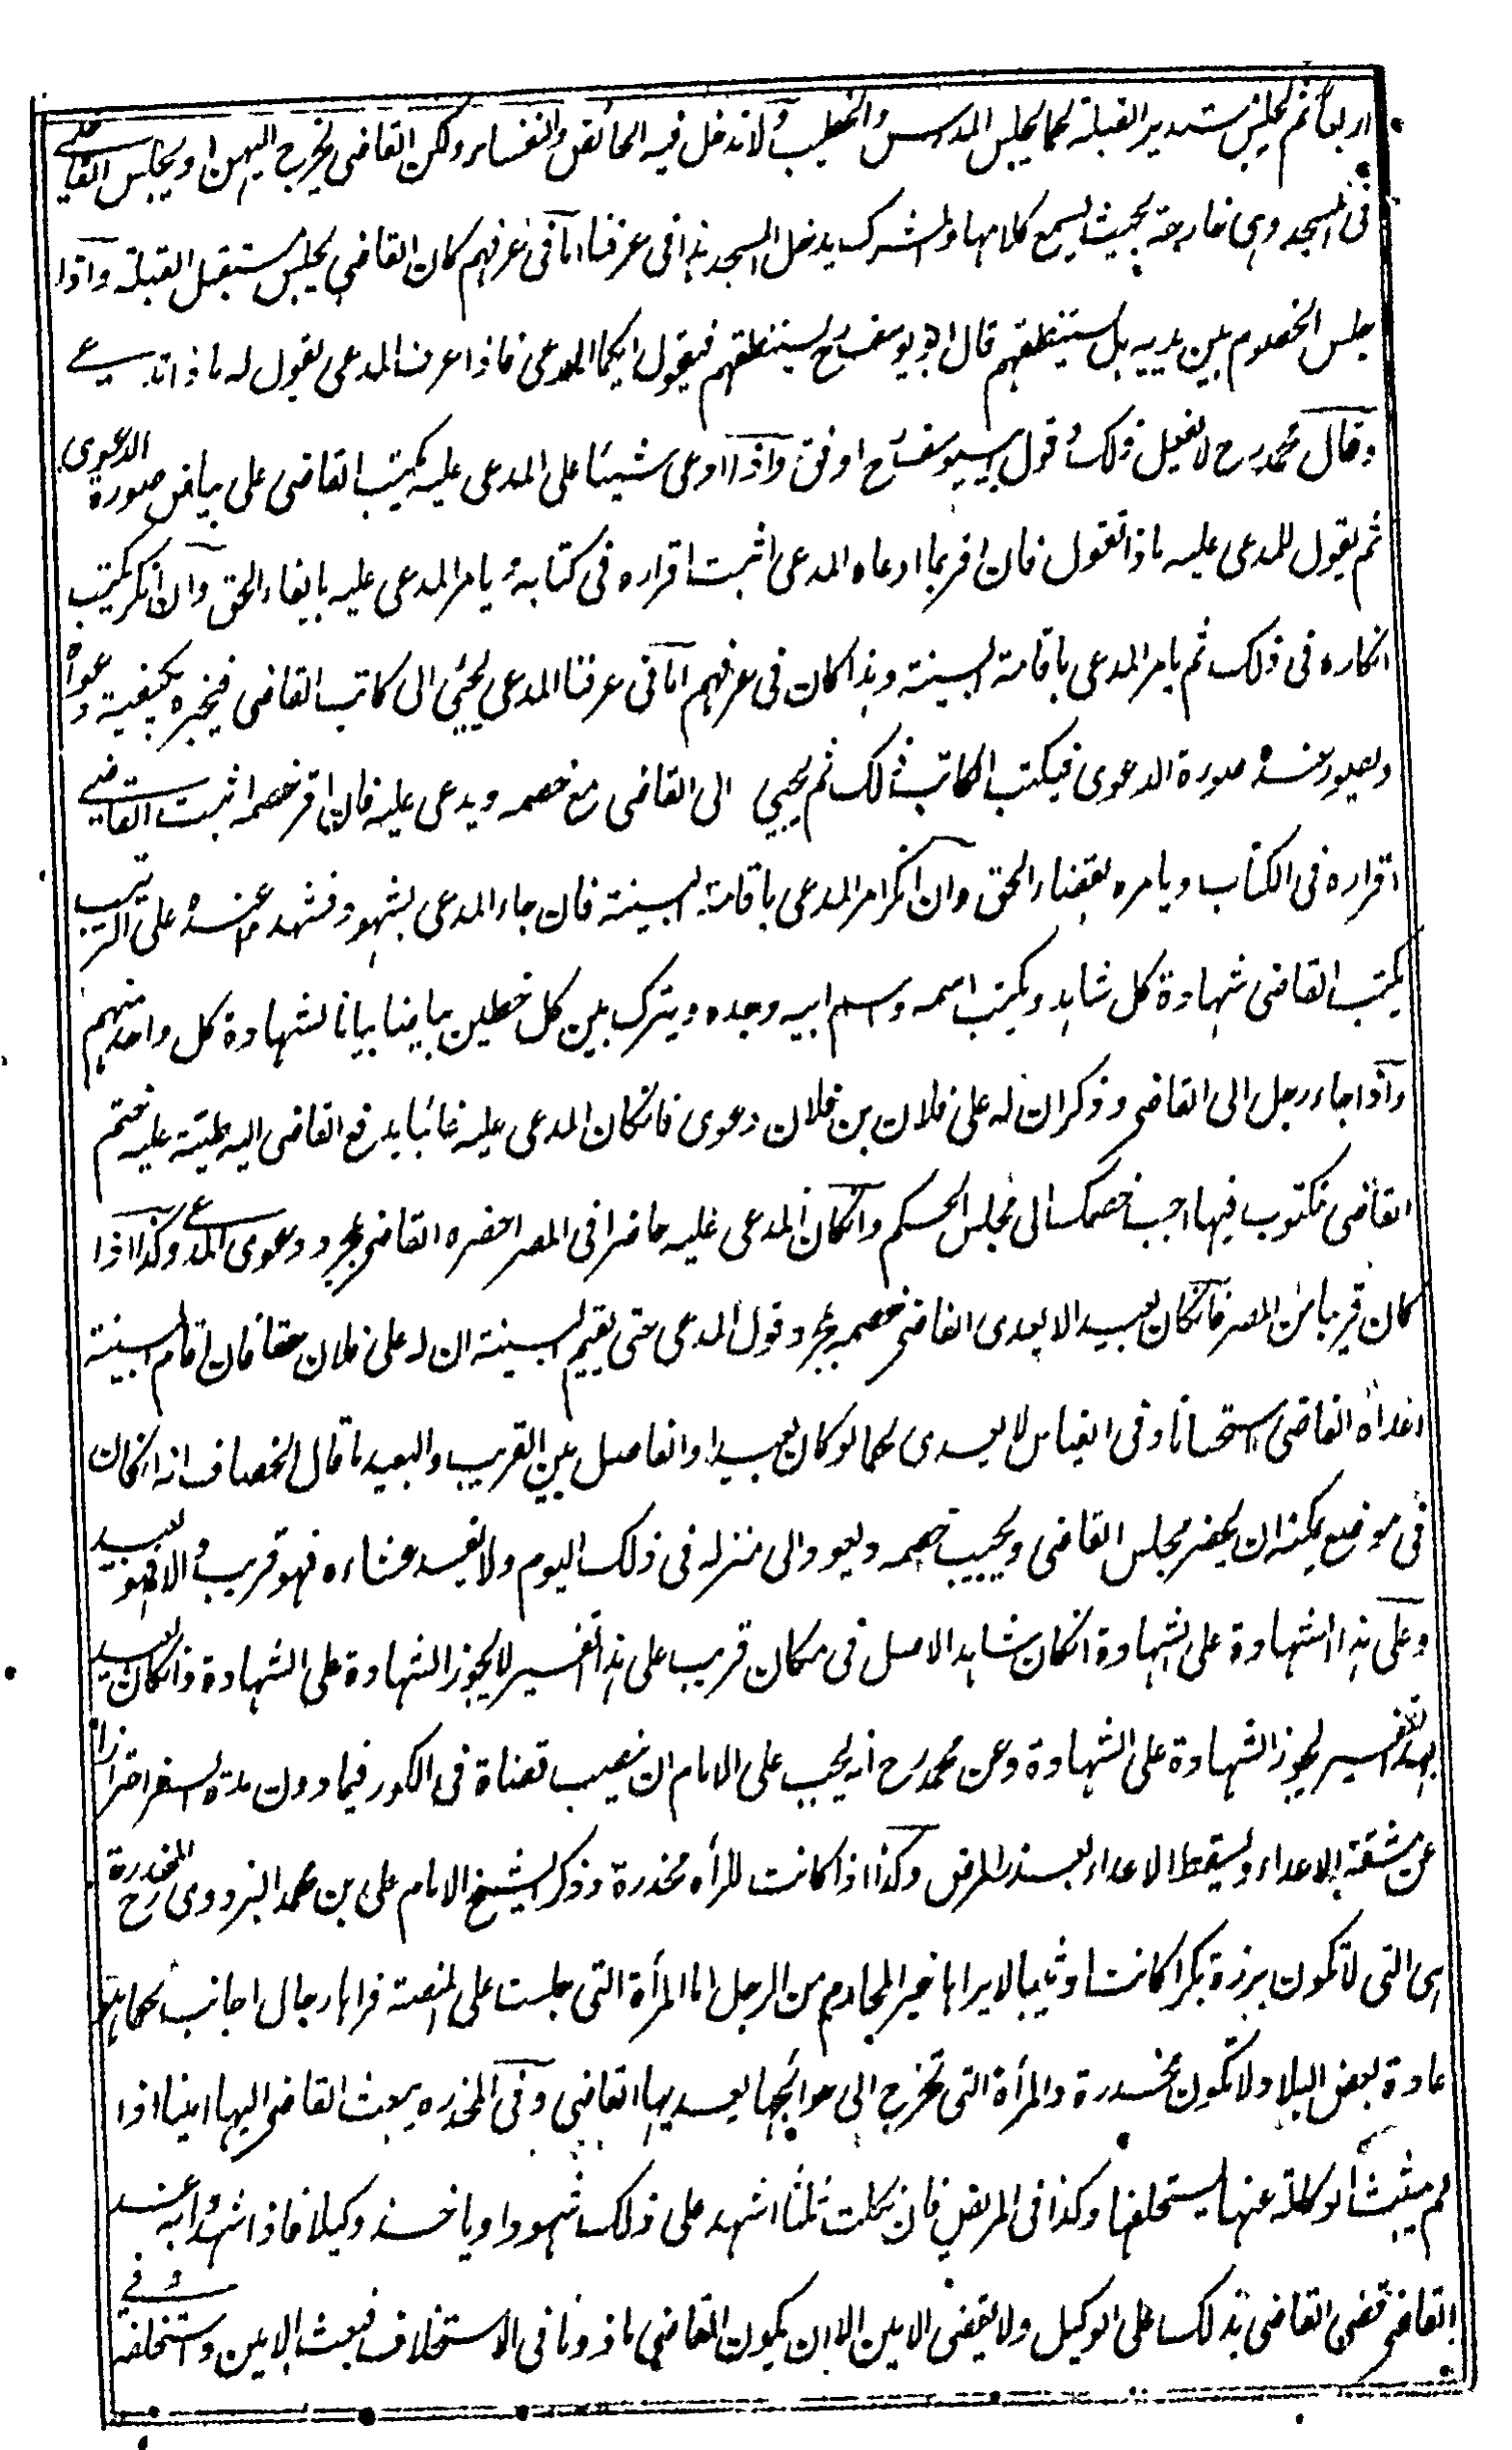 اربعا ثم يجلس مستدبر القبلة كما يجلس المدرس والخطيب ولا تدخل فيه الحائض والنفساء ولكن القاضي يخرج اليهن او يجلس القاضي
في المسجد وهي خارجة بحيث يسمع كلامها والمشرك يدخل المسجد هذا في عرفنا اما في عرفهم كان القاضي يجلس مستقبل القبلة واذا
جلس الخصوم بين يديه هل يستنطقهم قال ابو يوسف رح يستنطقهم فيقول ايكما المدعي فاذا عرف المدعي يقول له ماذا تدعي
وقال محمد رح لا يفعل ذلك وقول ابي يوسف رح اوفق واذا ادعى شيئا على المدعى عليه يكتب القاضي على بياض صورة الدعوى
ثم يقول للمدعى عليه ماذا تقول فان اقر بما ادعاه المدعي اثبت اقراره في كتابه ويامر المدعى عليه بايفاء الحق وان انكر يكتب
انكاره في ذلك ثم يامر المدعي باقامة البينة وهذا كان في عرفهم اما في عرفنا المدعي يجيئ الى كاتب القاضي فيخبره بكيفية دعواه
ويصور عنده صورة الدعوى فيكتب الكاتب ذلك ثم يجيئ الى القاضي مع خصمه ويدعي عليه فان اقر خصمه اثبت القاضي
اقراره في الكتاب ويامره بقضاء الحق وان انكر امر المدعي باقامة البينة فان جاء المدعي بشهود فشهد عنده على الترتيب
يكتب القاضي شهادة كل شاهد ويكتب اسمه واسم ابيه وجده ويترك بين كل خطين بياضا بيانا لشهادة كل واحد منهم
واذا جاء رجل الى القاضي وذكر ان له على فلان بن فلان دعوى فانكان المدعى عليه غائبا يدفع القاضي اليه طينة عليه ختم
القاضي مكتوب فيها اجب خصمك الى مجلس الحكم وانكان المدعى عليه حاضرا في المصر احضره القاضي بمجرد دعوى المدعي وكذا اذا
كان قريبا من المصر فانكان بعيدا لا يعدى القاضي خصمه بمجرد قول المدعي حتى يقيم البينة ان له على فلان حقا فان اقام البينة
اعداه القاضي استحسانا وفي القياس لا يعدى كما لو كان بعيدا والفاصل بين القريب والبعيد ما قال الخصاف انه انكان
في موضع يمكنه ان يحضر مجلس القاضي ويجيب خصمه ويعود الى منزله في ذلك اليوم ولا يفسد عشاءه فهو قريب والا فهو بعيد
وعلى هذا الشهادة على الشهادة انكان شاهد الاصل في مكان قريب على هذا التفسير لا يجوز الشهادة على الشهادة وانكان بعيدا
بهذا التفسير يجوز الشهادة على الشهادة وعن محمد رح انه يجب على الامام ان ينصب قضاة في الكور فيما دون مدة السفر احترازا
عن مشقة الاعداء ويسقط الاعداء بعذر المرض وكذا اذا كانت المرأة مخدرة وذكر الشيخ الامام علي بن محمد البزدوي رح المخدرة
هي التي لا تكون برزة بكرا كانت او ثيبا لا يراها غير المحارم من الرجل اما المرأة التي جلست على المنصة فراها رجال اجانب كما هو
عادة بعض البلاد لا تكون مخدرة والمرأة التي تخرج الى حوائجها يعديها القاضي وفي المخدره يبعث القاضي اليها امينا اذا
لم يثبت الوكالة عنها يستحلفها وكذا في المريض فان نكلت ثلثا اشهد على ذلك شهودا وياخذ وكيلا فاذا شهدوا به عند
القاضي قضى القاضي بذلك على الوكيل ولا يقضي الامين الا ان يكون القاضي ماذونا في الاستخلاف فبعث الامين واستخلفه وفي